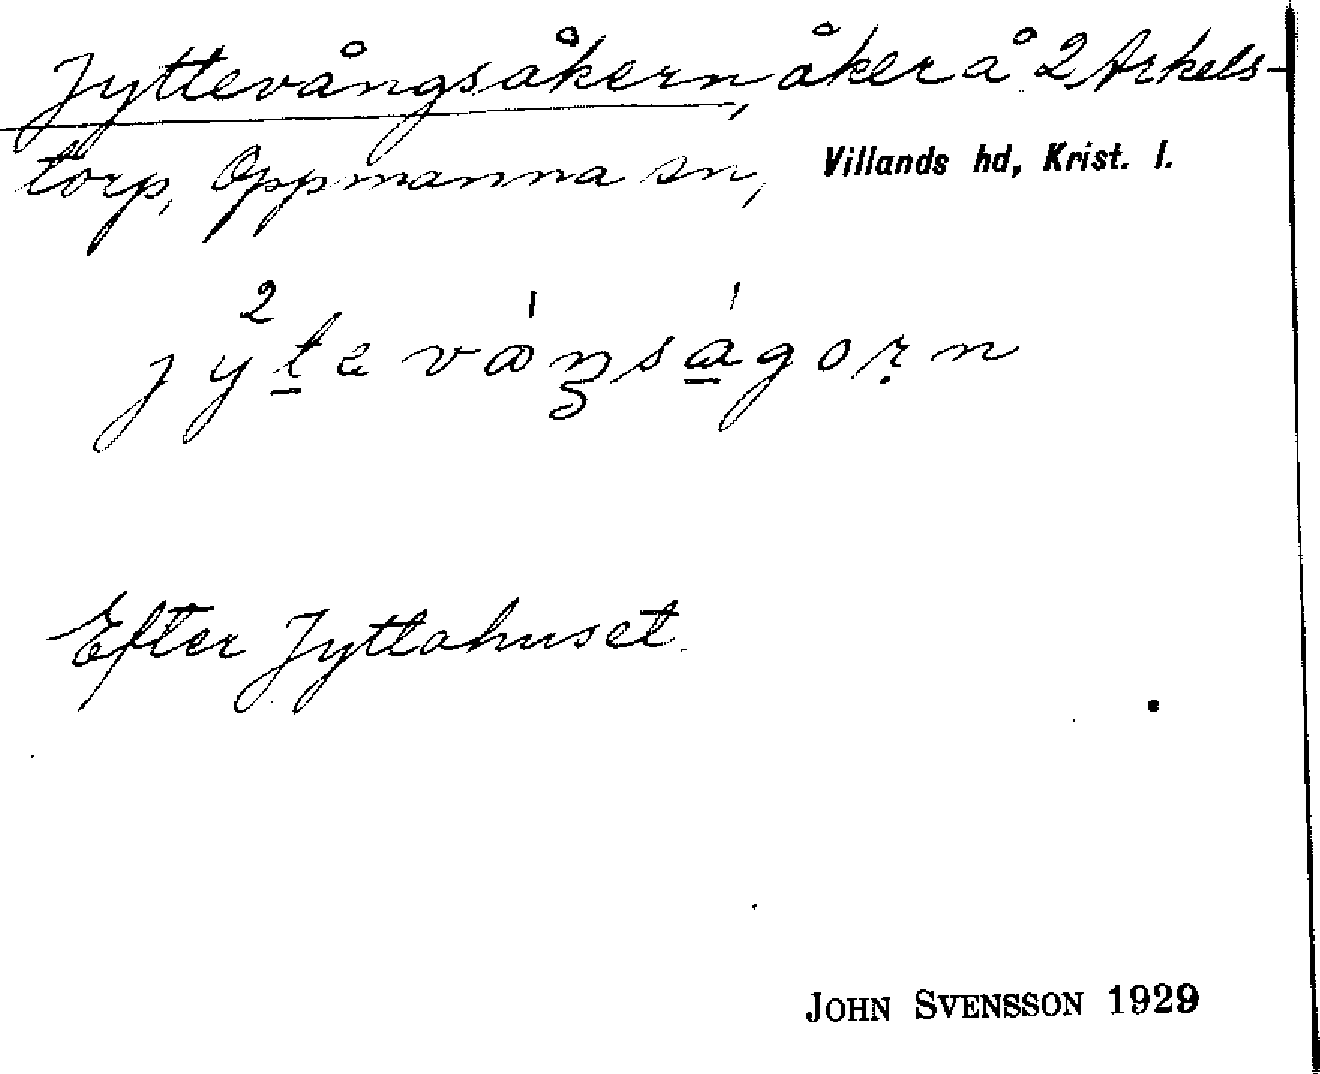 Jyttevångsåkern, åker å 2 Arkels-
torp, Oppmanna sn, Villands hd, Krist. l.
Efter Jyttahuset.
JOHN SVENSSON 1929